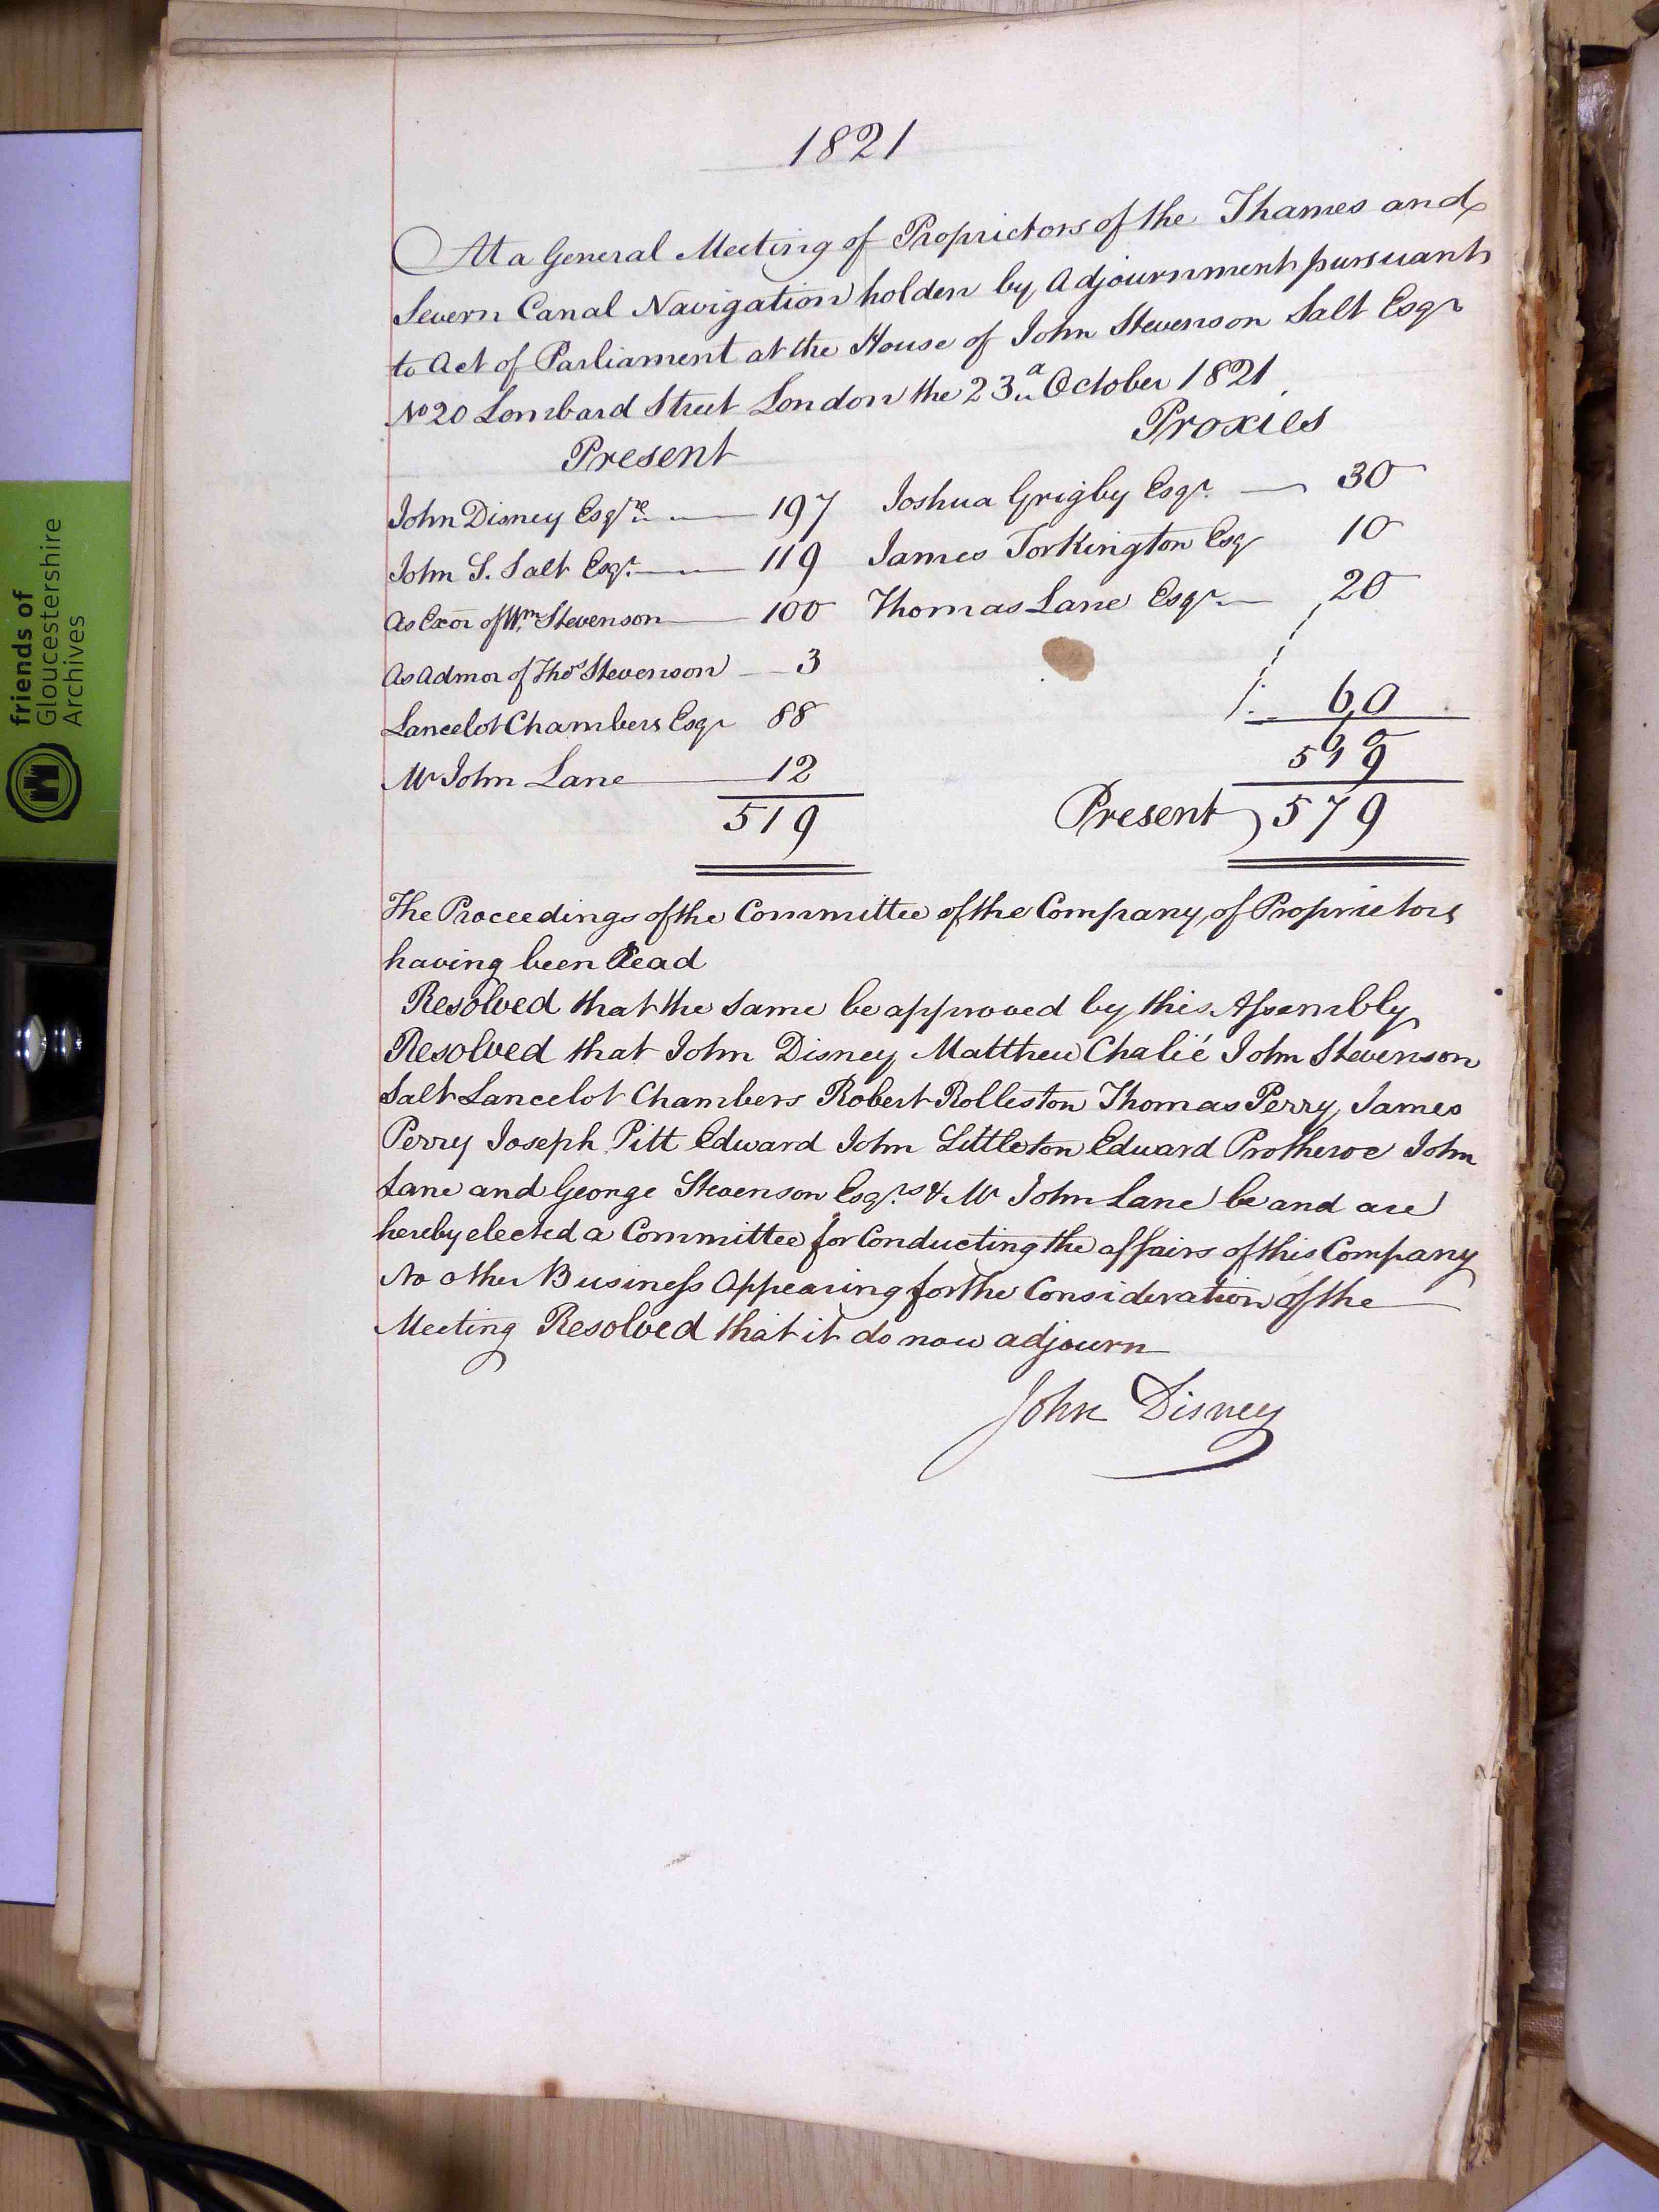 1821
At a General Meeting of Proprietors of the Thames and
Severn Canal Navigation holden by Adjournment pursuant
to Act of Parliament at the House of John Stevenson Salt Esqr
No 20 Lombard Street London the 23d October 1821
Present Proxies
John Disney Esqre 197 Joshua Grigby Esqr. 30
John S. Salt Esqr. 119 James Torkington Esq 10
As Exor of Wm. Stevenson 100 Thomas Lane Esqr 20
As Admor of Thos Stevenson 3
Lancelot Chambers Esqr 88 60
Mr John Lane 12
519 Present 579
The Proceedings of the Committee of the Company of Proprietors
having been Read
Resolved that the same be approved by this Assembly
Resolved that John Disney Matthew Chalié John Stevenson
Salt Lancelot Chambers Robert Rolleston Thomas Perry James
Perry Joseph Pitt Edward John Littleton Edward Protheroe John
Lane and George Stevenson Esqrs & Mr John Lane be and are
hereby elected a Committee for Conducting the affairs of this Company
No other Business Appearing for the Consideration of the
Meeting Resolved that it do now adjourn
John Disney
friends of
Gloucestershire
Archives